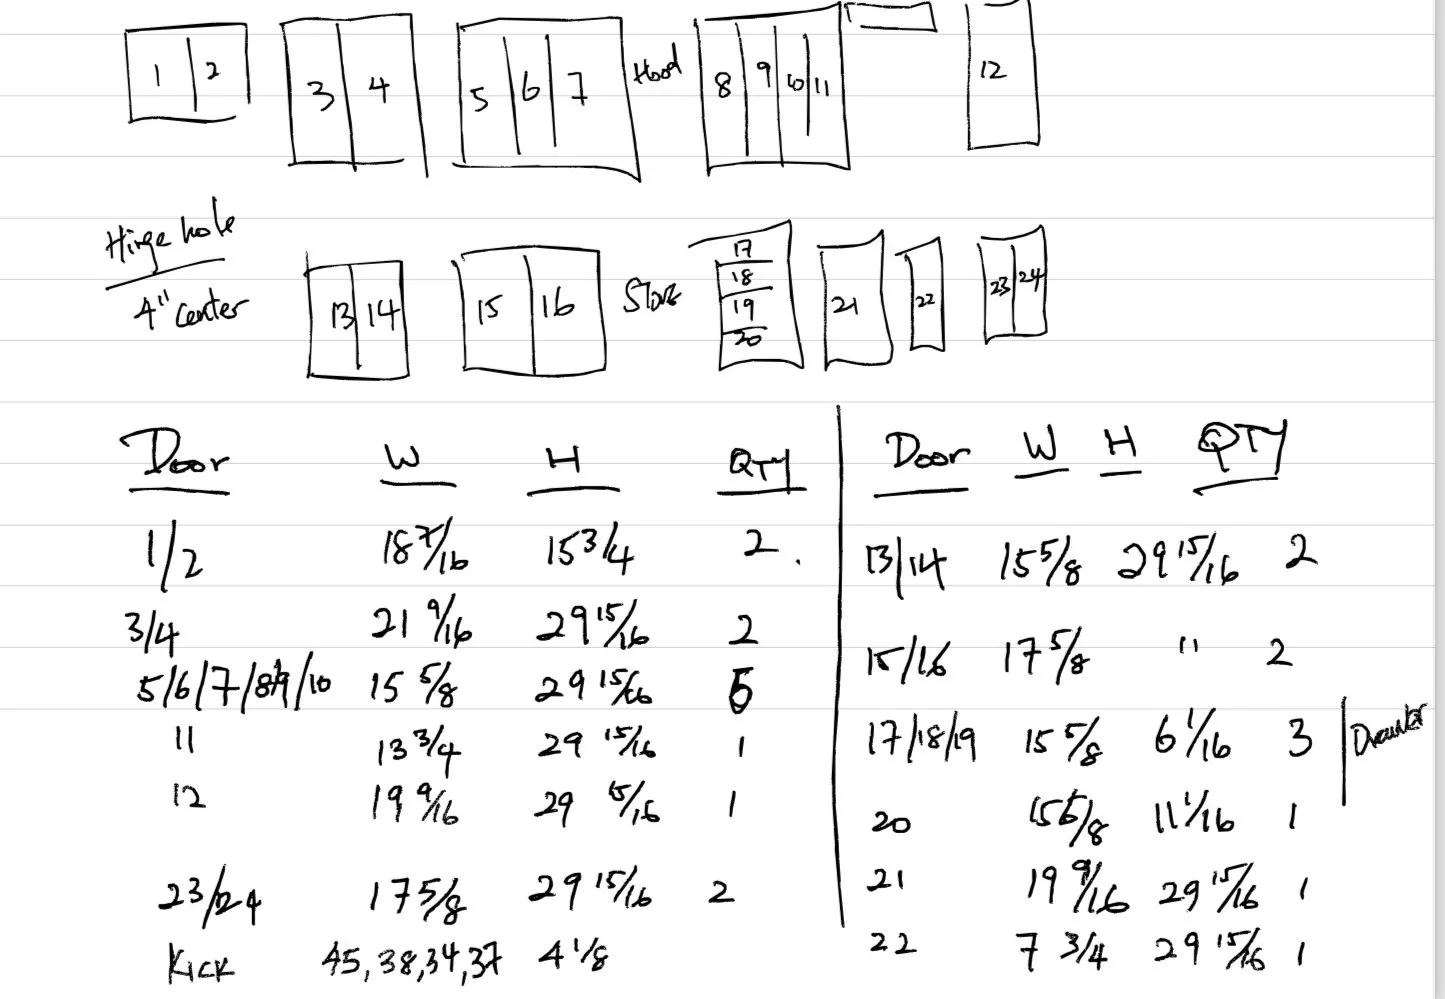 1 2
3 4
5 6 7
Hood
8 9 10 11
12
Hinge hole
4" center
13 14
15 16
Stove
17
18
19
20
21
22
23 24
Door W H QTY
1/2 18 7/16 15 3/4 2
3/4 21 9/16 29 15/16 2
5/6/7/8/9/10 15 5/8 29 15/16
11 13 3/4 29 15/16 1
12 19 9/16 29 15/16 1
23/24 17 5/8 29 15/16 2
Kick 45, 38, 34, 37 4 1/8
Door W H QTY
13/14 15 5/8 29 15/16 2
15/16 17 5/8 " 2
17/18/19 15 5/8 6 1/16 3
20 15 5/8 11 1/16 1
21 19 9/16 29 15/16 1
22 7 3/4 29 15/16 1